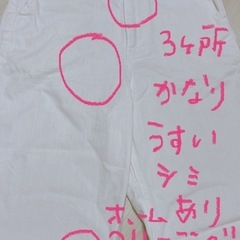 3ヶ所
かなり
うすい
シミ
ホームあり